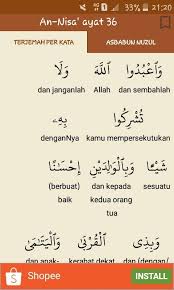 33% 21:20
An-Nisa' ayat 36
TERJEMAH PER KATA ASBABUN NUZUL
وَٱعْبُدُوا۟ ٱللَّهَ وَلَا
dan janganlah Allah dan sembahlah
تُشْرِكُوا۟ بِهِۦ
denganNya kamu mempersekutukan
شَيْـًٔا وَبِٱلْوَٰلِدَيْنِ إِحْسَـٰنًا
(berbuat) dan kepada sesuatu
baik kedua orang
tua
وَبِذِى ٱلْقُرْبَىٰ وَٱلْيَتَـٰمَىٰ
dan anak- kerabat dekat dan (dengan/
Shopee INSTALL